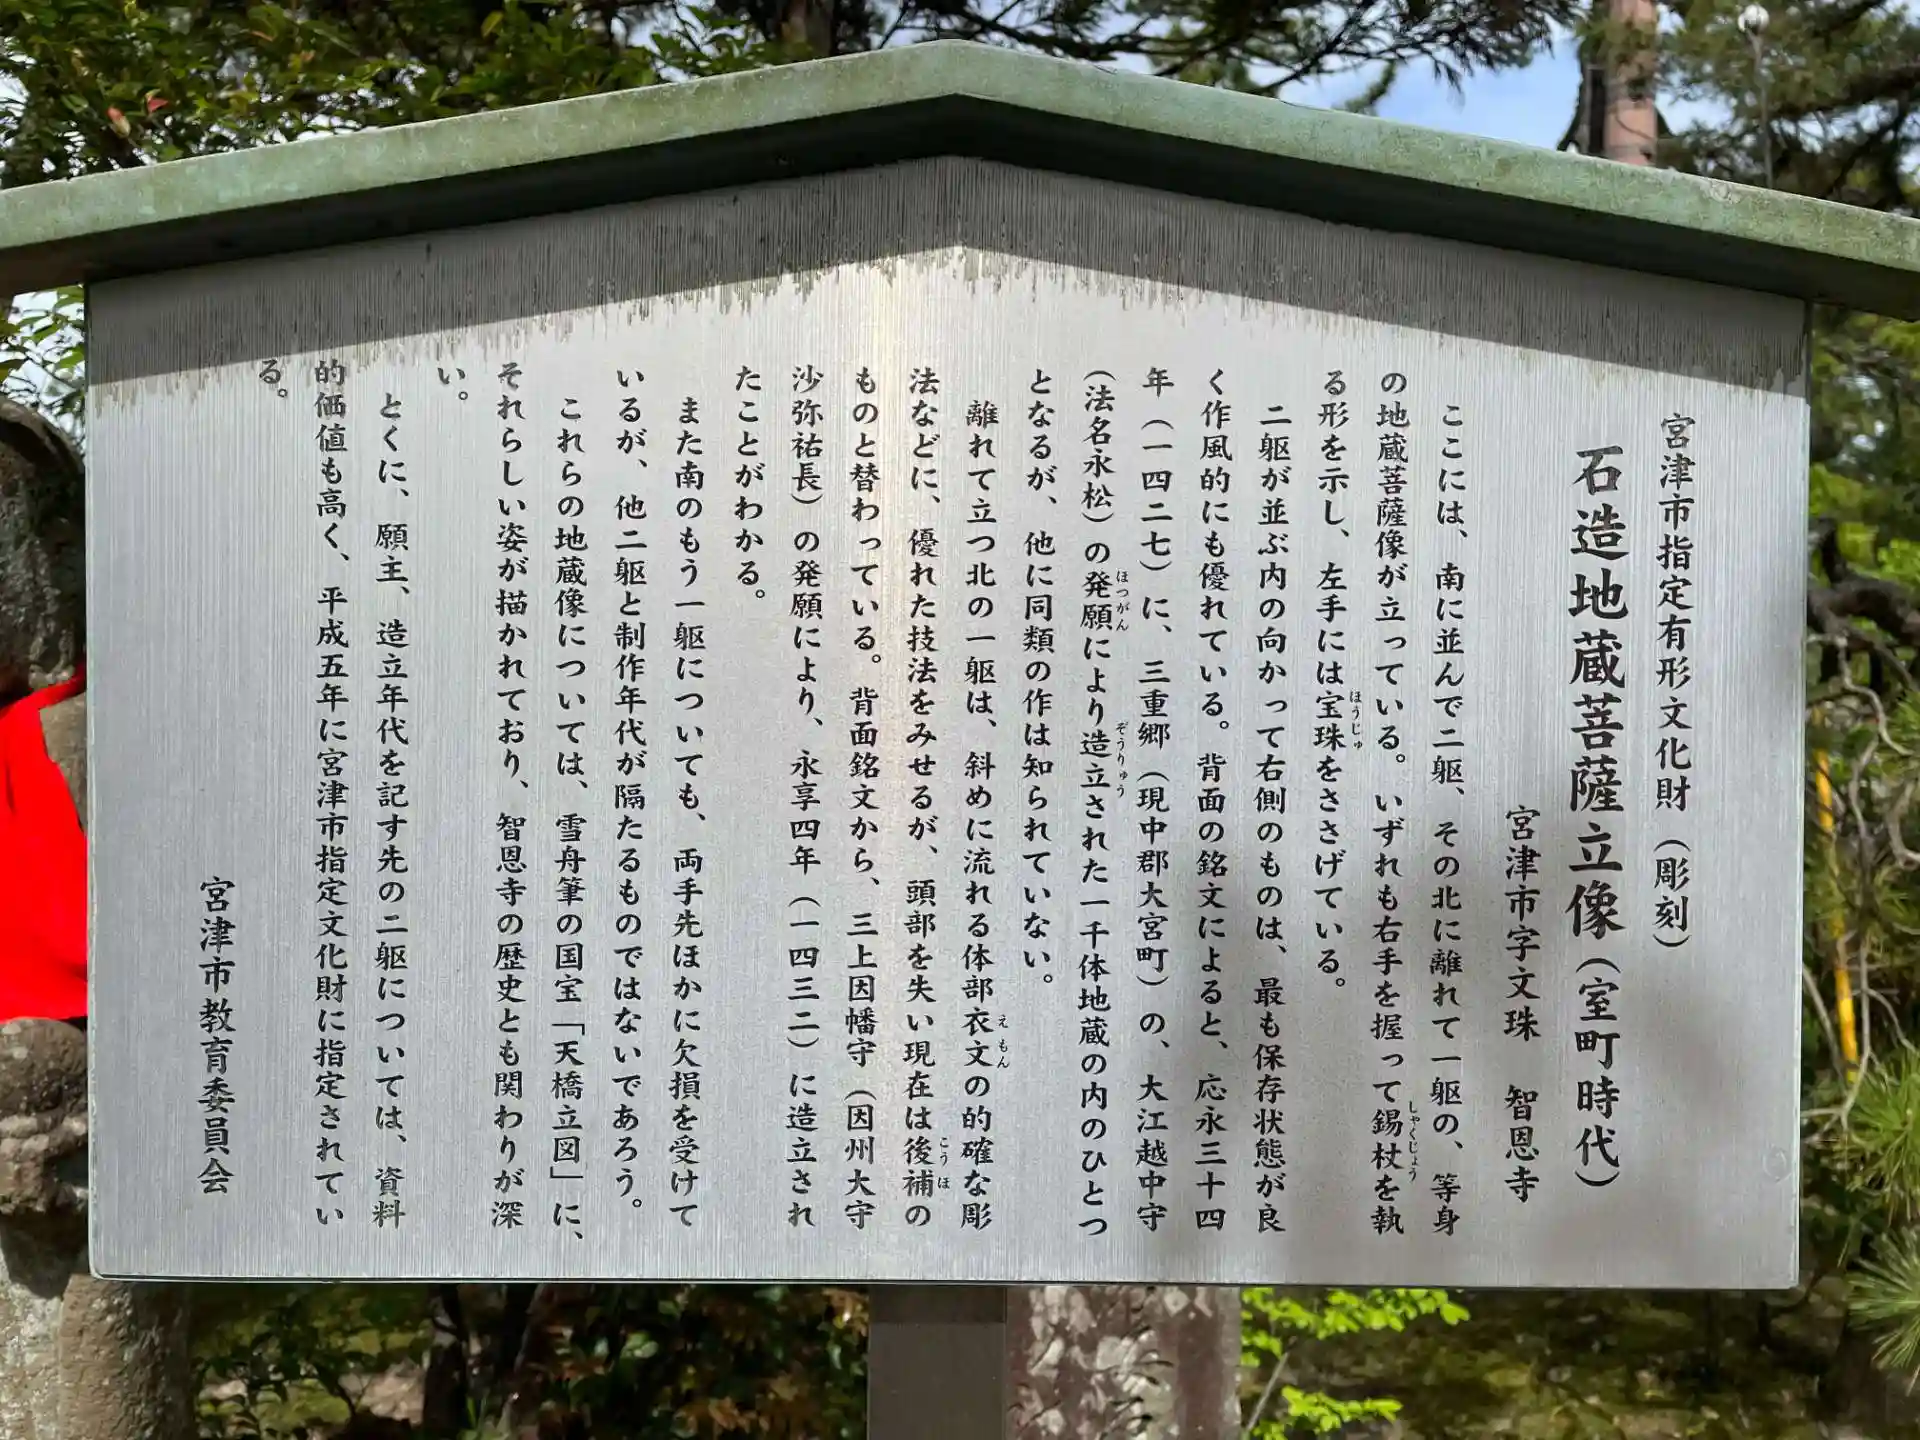 宮津市指定有形文化財（彫刻）
石造地蔵菩薩立像（室町時代）
宮津市字文珠　智恩寺
ここには、南に並んで二躯、その北に離れて一躯の、等身
の地蔵菩薩像が立っている。いずれも右手を握って錫杖を執
しゃくじょう
る形を示し、左手には宝珠をささげている。
ほうじゅ
二躯が並ぶ内の向かって右側のものは、最も保存状態が良
く作風的にも優れている。背面の銘文によると、応永三十四
年（一四二七）に、三重郷（現中郡大宮町）の、大江越中守
（法名永松）の発願により造立された一千体地蔵の内のひとつ
ほつがん
ぞうりゅう
となるが、他に同類の作は知られていない。
離れて立つ北の一躯は、斜めに流れる体部衣文の的確な彫
えもん
法などに、優れた技法をみせるが、頭部を失い現在は後補の
こうほ
ものと替わっている。背面銘文から、三上因幡守（因州大守
沙弥祐長）の発願により、永享四年（一四三二）に造立され
たことがわかる。
また南のもう一躯についても、両手先ほかに欠損を受けて
いるが、他二躯と制作年代が隔たるものではないであろう。
これらの地蔵像については、雪舟筆の国宝「天橋立図」に、
それらしい姿が描かれており、智恩寺の歴史とも関わりが深
い。
とくに、願主、造立年代を記す先の二躯については、資料
的価値も高く、平成五年に宮津市指定文化財に指定されてい
る。
宮津市教育委員会